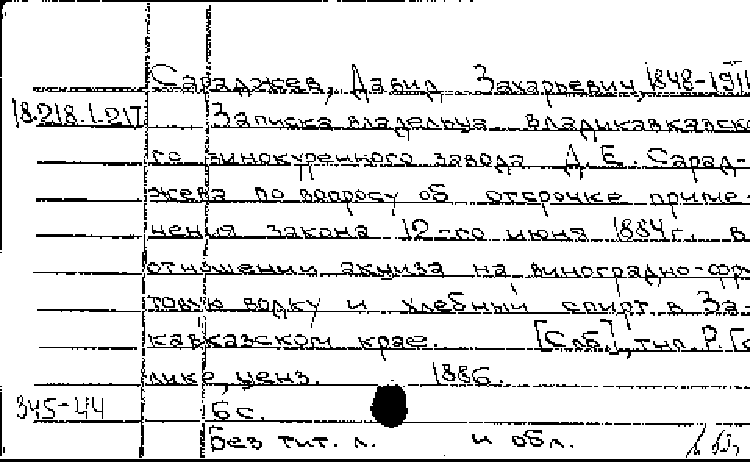 Сараджев, Давид Захарьевич, 1848-1911
18.218.1.217 Записка владельца владикавказско-
го винокуренного завода Д. Е. Сарад-
жева по вопросу об отсрочке приме-
нения закона 12-го июня 1884г. в
отношении акциза на виноградно-фру
товую водку и хлебный спирт в За-
кавказском крае. [Спб.], тип. Р. Го
лике, ценз. 1886.
345-44 6 с.
Без тит. л. и обл.